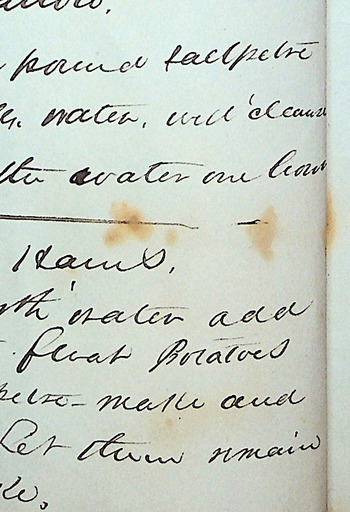 pound saltpetre
water, will cleanse
the water one hour
Hams.
with water add
float Potatoes
petre - make and
Let them remain